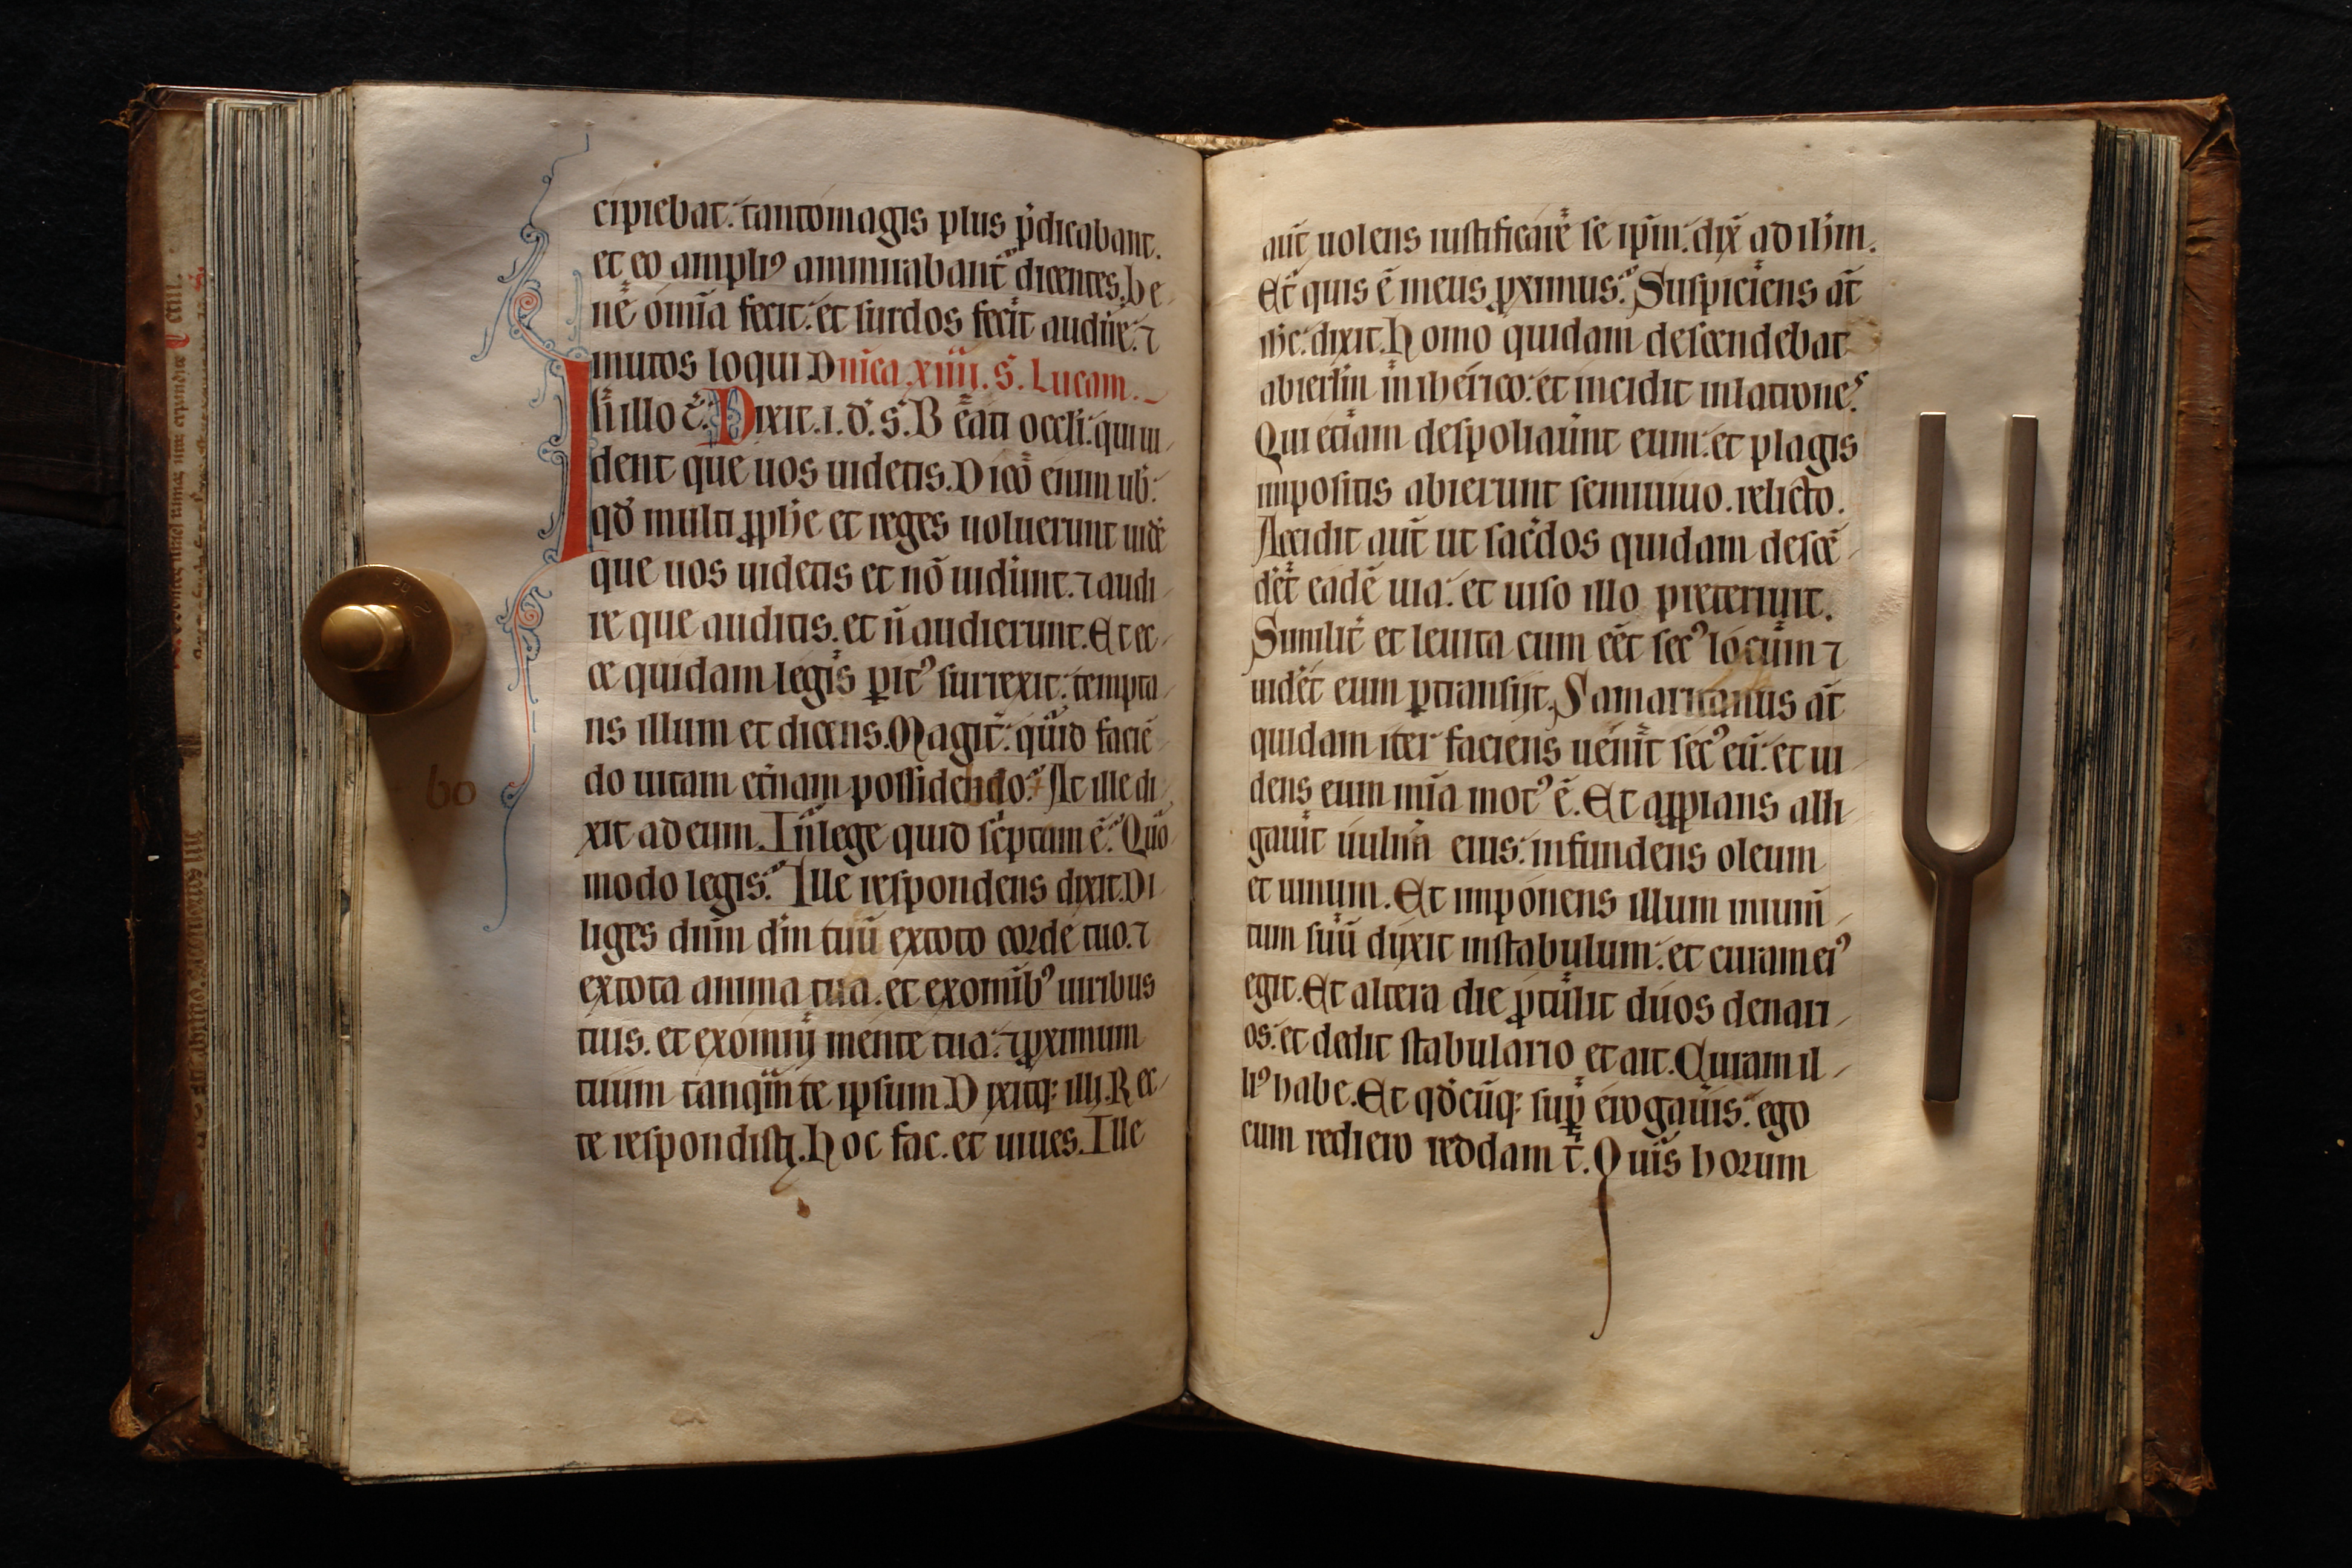 cipiebat. tantomagis plus p̃dicabant.
et eo ampliꝰ ammirabant̃ dicentes. be
nẽ om̃ia fecit. et surdos fecit audire. ⁊
mutos loqui Dñica. xiiii. s̃. Lucam.
In illo t̃. Dixit. i. d̃. s̃. B eati oculi. qui ui
dent que uos uidetis. D ico enim ub̃.
qđ multi ꝓphe et reges uoluerunt uidẽ
que uos uidetis et nõ uider̃unt. ⁊ audi
re que auditis. et ñ audierunt. Et ec
ce quidam legis ꝑitꝰ surrexit. tempta
ns illum et dicens. Magist̃. quid faciẽ
do uitam et̃nam possidebo. At ille di
xit ad eum. In lege quid sc̃ptum ẽ. Quo
modo legis. Ille respondens dixit. Di
liges dñm dm̃ tuũ extoto corde tuo. ⁊
extota anima tua. et exomib̃ꝰ uiribus
tuis. et exomnij mente tua. ⁊ ꝓximum
tuum tanqm̃ te ipsum. D ixitq; illi. R ec
te respondisti. h oc fac. et uiues. Ille
60
aut̃ uolens iustificare se ipm̃. dix̃ ad ihm̃.
Et quis ẽ meus ꝓximus. Suspiciens at̃
ihc. dixit. h omo quidam descendebat
abierlm̃ in iherico. et incidit in latrones.
Qui etiam despoliauer̃unt eum. et plagis
impositis abierunt semiuiuo. relicto.
Accidit aut̃ ut sac̃dos quidam descẽ
der̃et eadẽ uia. et uiso illo preteriuit.
Similit̃ et leuita cum eẽt secꝰ locum ⁊
uider̃et eum ꝑtransijt. Samaritanus at̃
quidam iter faciens uenit secꝰ eũ. et ui
dens eum mĩa motꝰ ẽ. Et app̃pians alli
gauit uulnera eius. infundens oleum
et uinum. Et imponens illum inium̃
tum suũ duxit instabulum. et curam eiꝰ
egit. Et altera die ꝓtulit duos denari
os. et dedit stabulario et ait. Curam il
liꝰ habe. Et qđcũq; sup̃ erogaueris. ego
cum rediero reddam t̃. Q uis horum